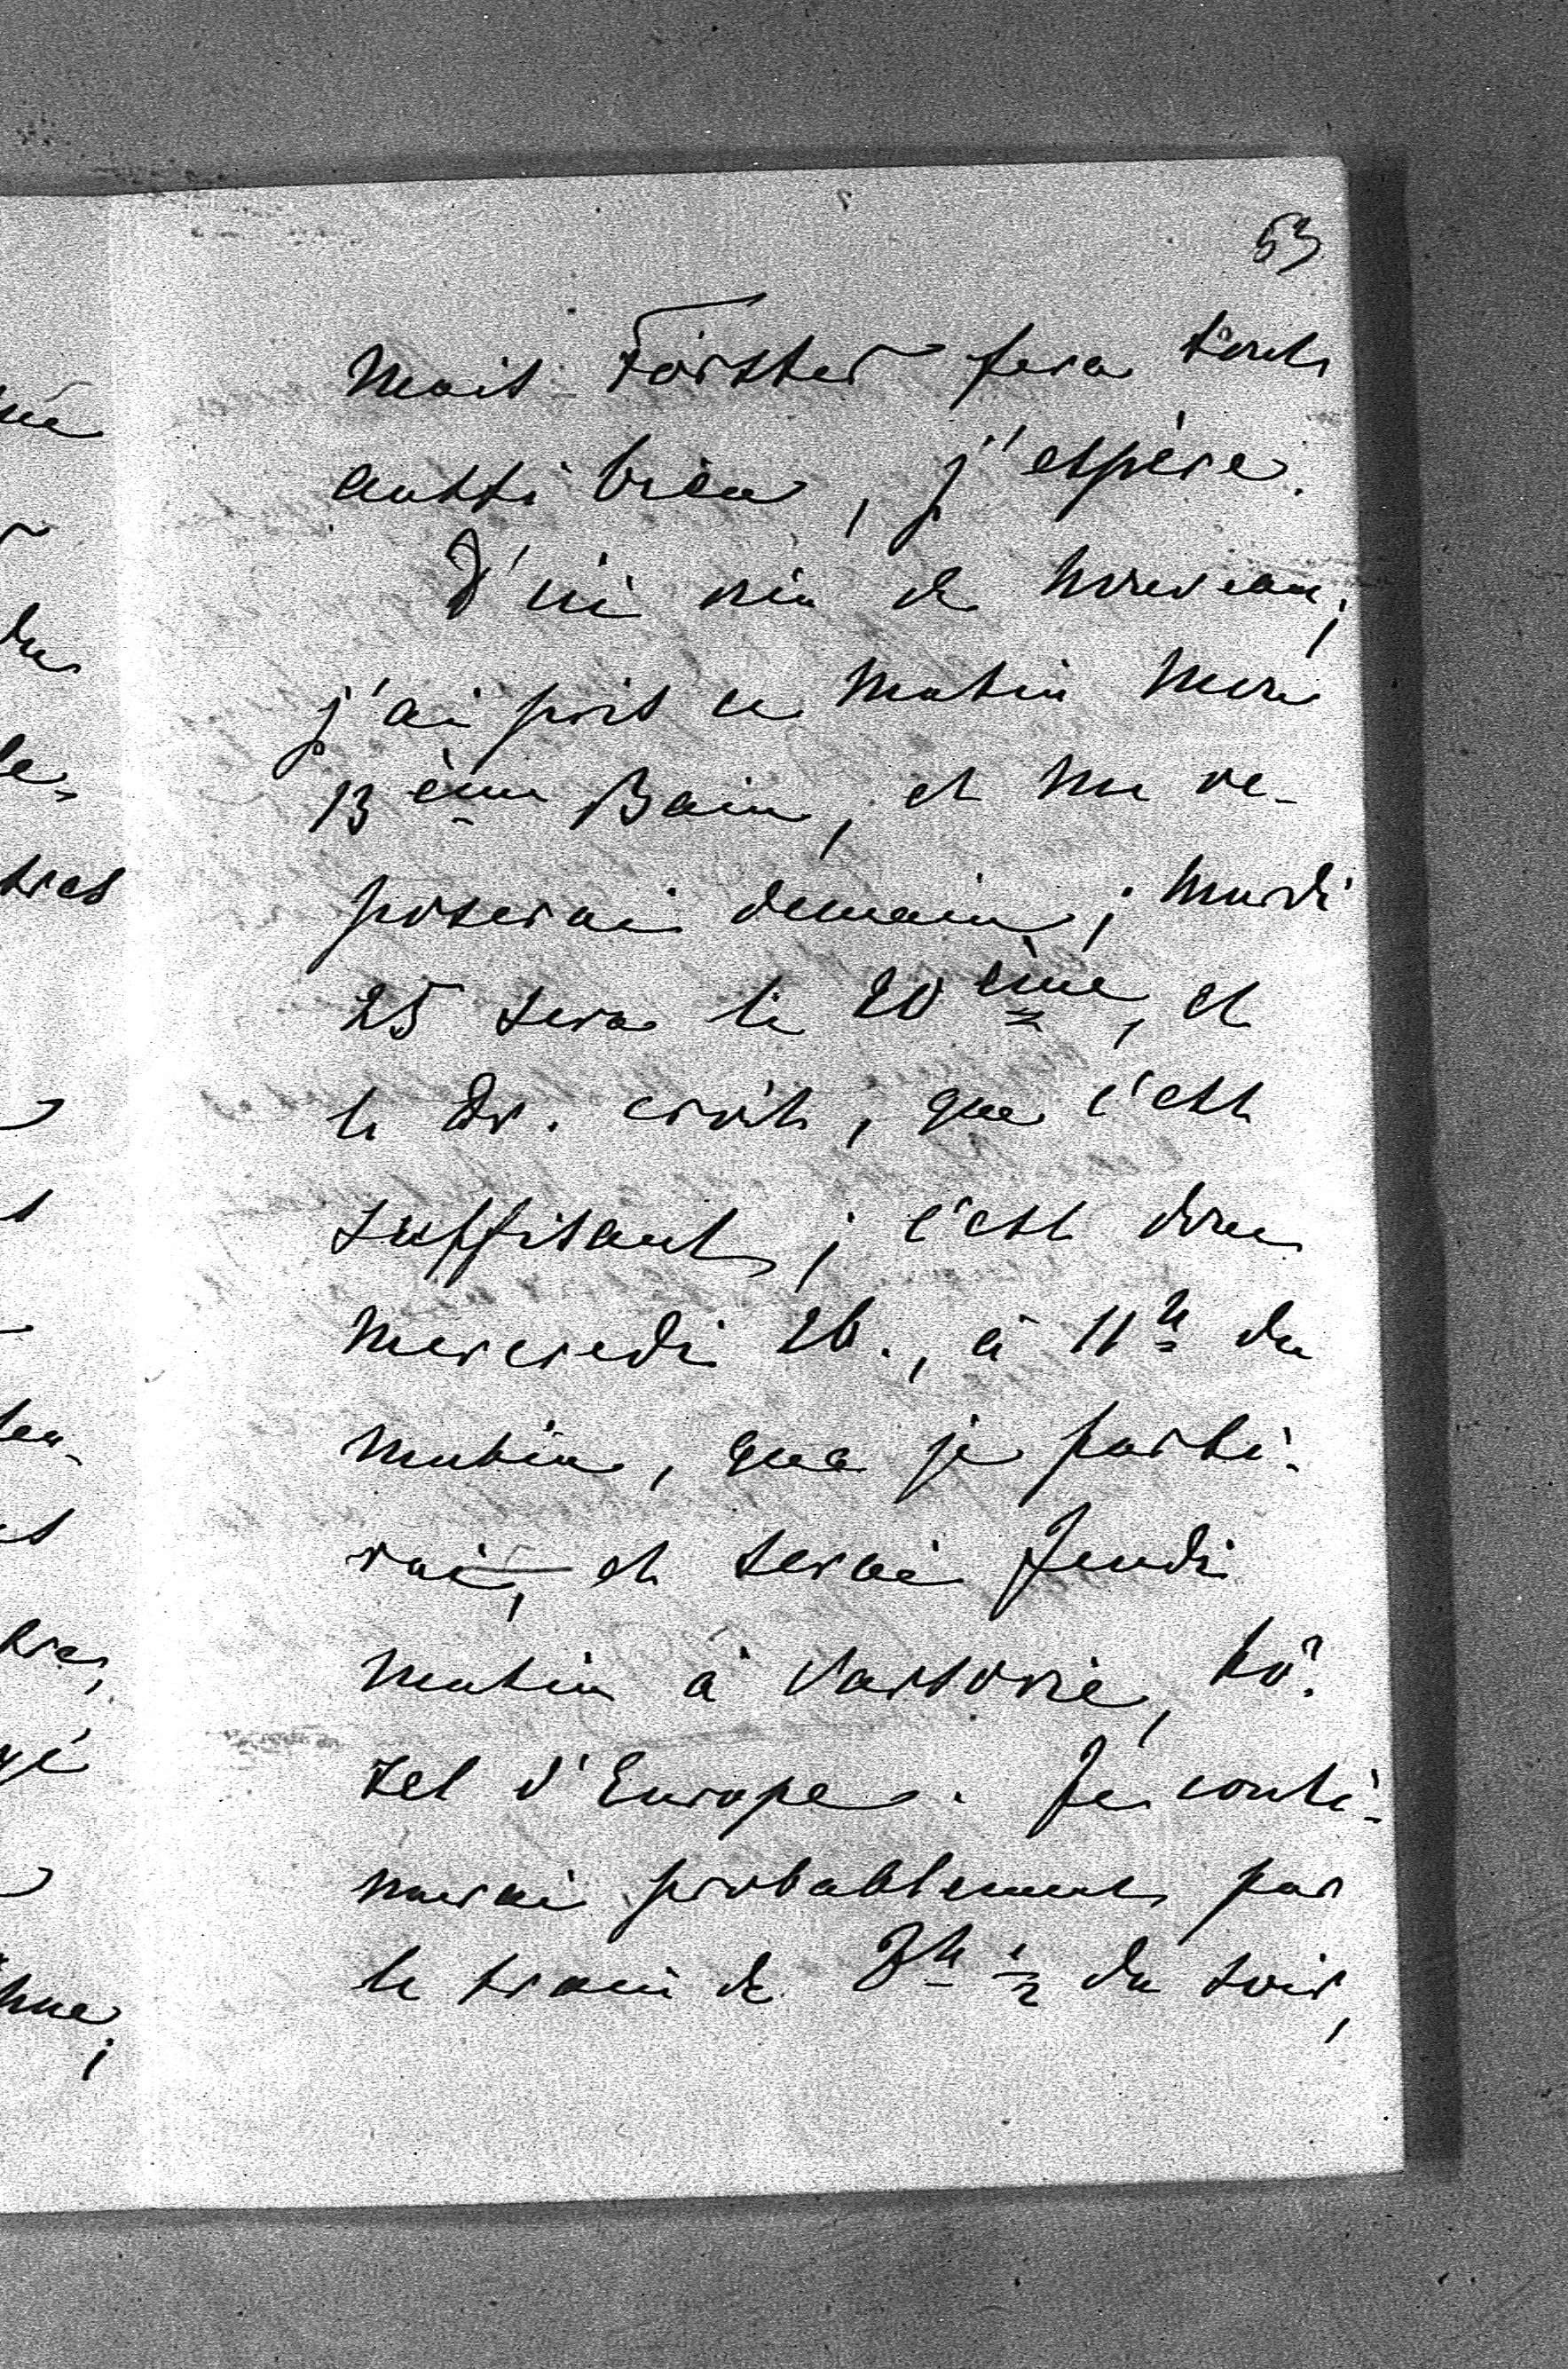 53
mais Förster fera tout
aussi bien, j'espère.
D'ici rien de nouveau;
j'ai pris ce matin mon
13ème Bain, et me re-
poserai demain; Mardi
25 sera le 20ème, et
le Dr. croit, que c'est
suffisant; c'est donc
Mercredi 26., à 11h du
matin, que je parti-
rai, et serai Jeudi
matin à Varsovie, hô-
tel d'Europe. Je conti-
nuerai probablement par
le train de 3h ½ du soir,